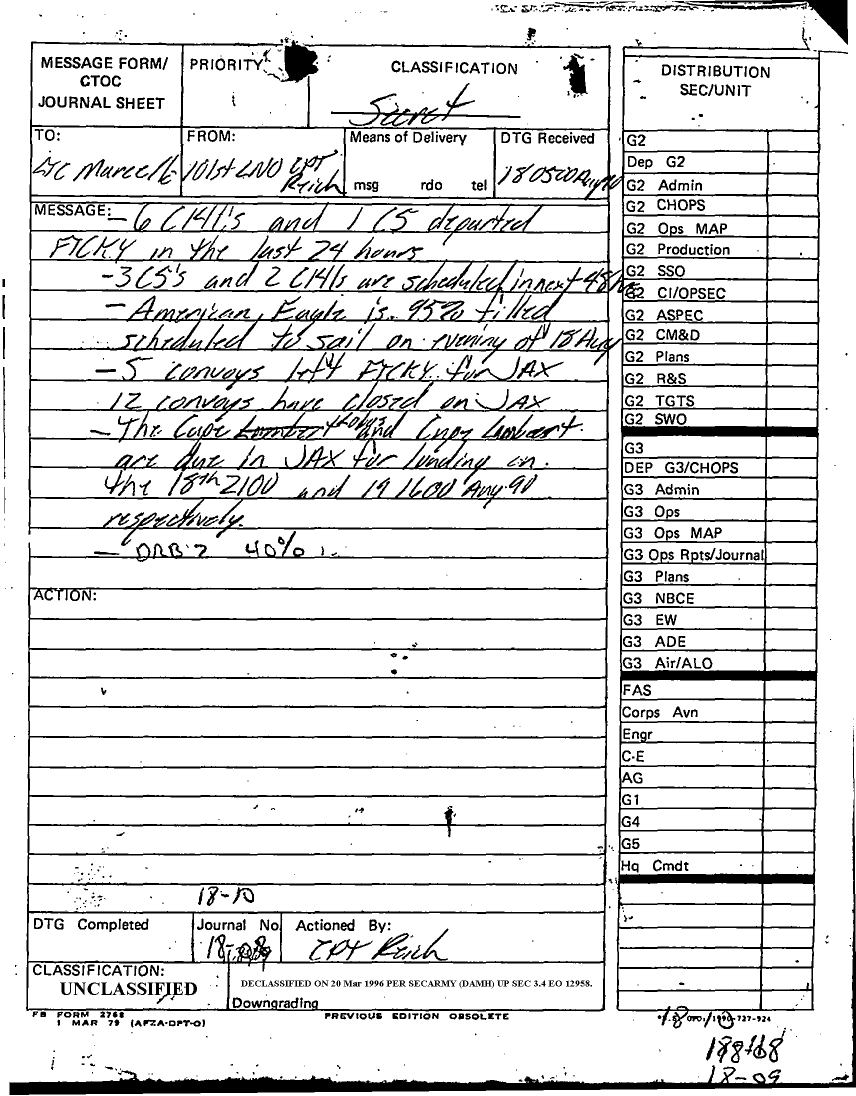 MESSAGE FORM/
CTOC
JOURNAL SHEET
PRIORITY
CLASSIFICATION
Secret
TO:
LTC Marcello
FROM:
101st LNO CPT
Reich
Means of Delivery
msg rdo tel
DTG Received
180500Aug90
MESSAGE:
– 6 C141's and 1 C5 departed
FTCKY in the last 24 hours
-3 C5's and 2 C141s are scheduled in next 48 hrs
– American Eagle is 95% filled
scheduled to sail on evening of 18 Aug
– 5 convoys left FTCKY for JAX
12 convoys have closed on JAX
– The Cape and Cape Lambert
are due in JAX for loading on
the 18th 2100 and 19 1600 Aug 90
respectively.
– DRB 2 40%
ACTION:
18-10
DTG Completed
Journal No
18-
Actioned By:
CPT Reich
CLASSIFICATION:
UNCLASSIFIED
DECLASSIFIED ON 20 Mar 1996 PER SECARMY (DAMH) UP SEC 3.4 EO 12958.
Downgrading
FB FORM 2768
1 MAR 79 (AFZA-DPT-O)
PREVIOUS EDITION OBSOLETE
DISTRIBUTION
SEC/UNIT
G2
Dep G2
G2 Admin
G2 CHOPS
G2 Ops MAP
G2 Production
G2 SSO
G2 CI/OPSEC
G2 ASPEC
G2 CM&D
G2 Plans
G2 R&S
G2 TGTS
G2 SWO
G3
DEP G3/CHOPS
G3 Admin
G3 Ops
G3 Ops MAP
G3 Ops Rpts/Journal
G3 Plans
G3 NBCE
G3 EW
G3 ADE
G3 Air/ALO
FAS
Corps Avn
Engr
C-E
AG
G1
G4
G5
Hq Cmdt
GPO: 1990-727-924
18-09